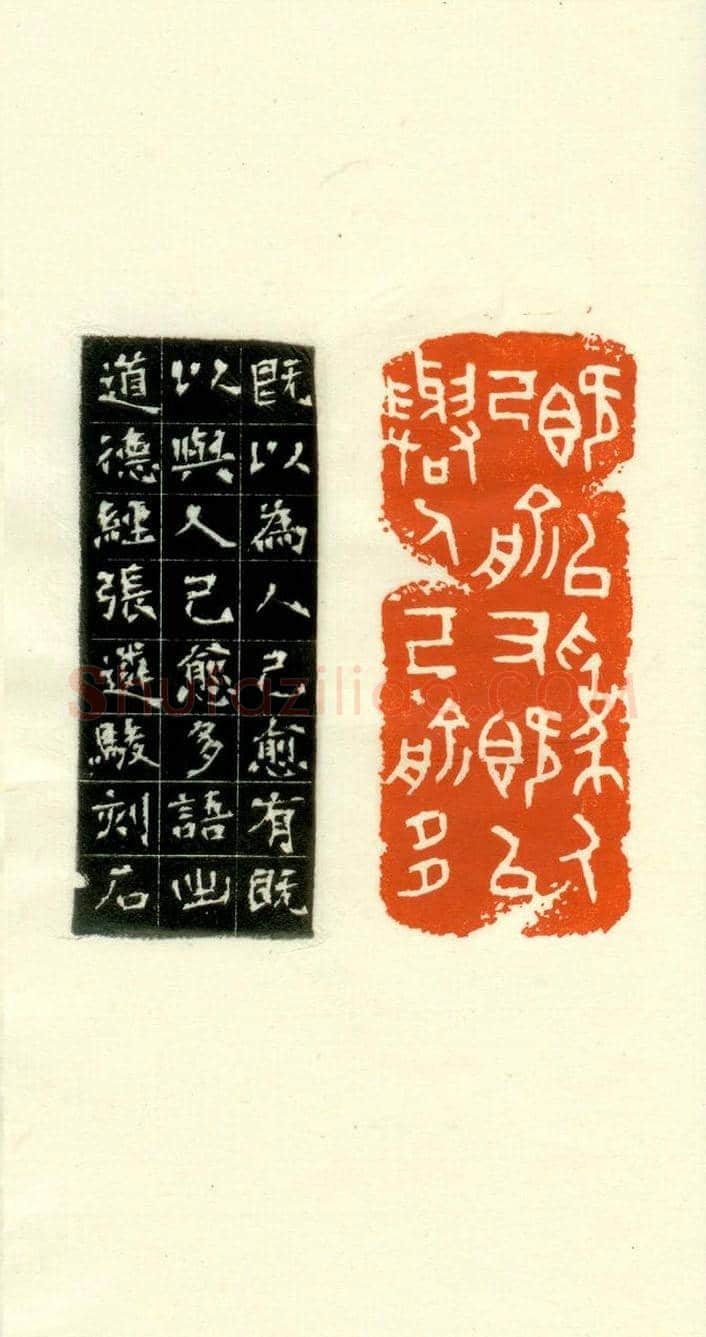 既以為人
己俞又既以
與人己俞多
既以為人己愈有既
以與人己愈多語出
道德經張遴駿刻石
Shufaziliao.COM